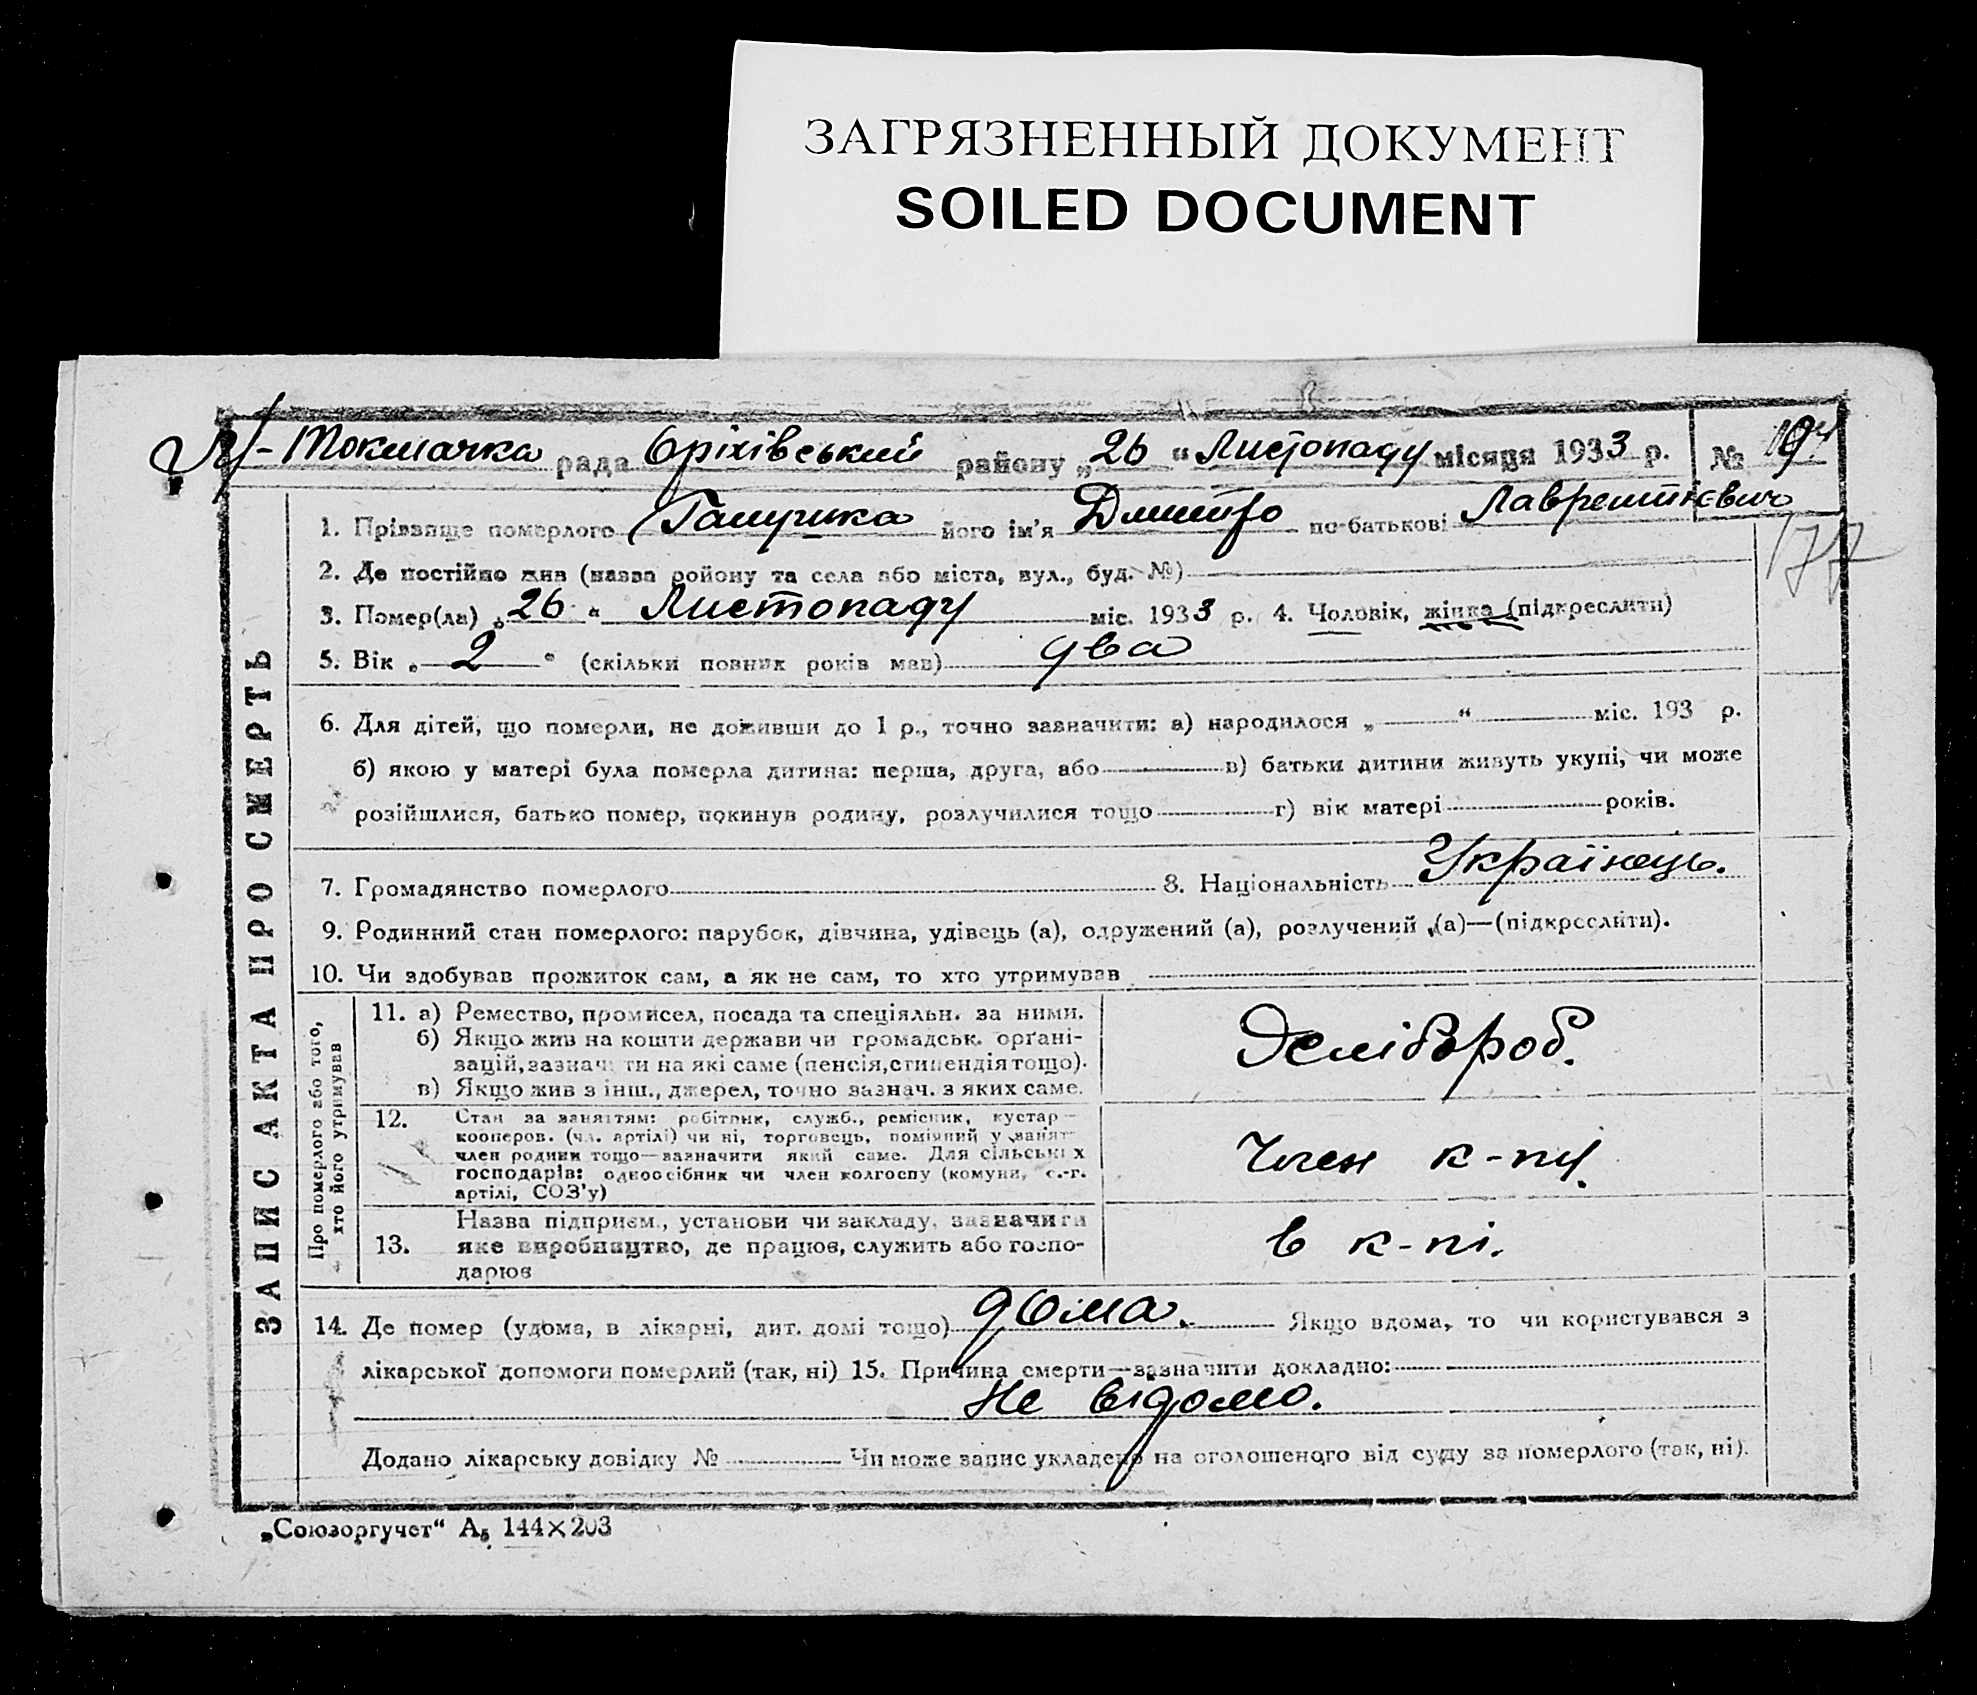 ЗАГРЯЗНЕННЫЙ ДОКУМЕНТ
SOILED DOCUMENT
М-Токмачка рада Оріхівський району „26“ Листопаду місяця 1933 р. №
1. Прізвище померлого Галушка його ім'я Дмитро по-батькові Лаврентієвич
177
2. Де постійно жив (назва ройону та села або міста, вул., буд. №)
3. Помер(ла) „26“ Листопаду міс. 1933 р. 4. Чоловік, жінка (підкреслити)
5. Вік „2“ (скільки повних років мав) два
6. Для дітей, що померли, не доживши до 1 р., точно зазначити: а) народилося „ “ міс. 193 р.
б) якою у матері була померла дитина: перша, друга, або в) батьки дитини живуть укупі, чи може
розійшлися, батько помер, покинув родину, розлучилися тощо г) вік матері років.
7. Громадянство померлого 8. Національність Українець.
9. Родинний стан померлого: парубок, дівчина, удівець (а), одружений (а), розлучений (а)—(підкреслити).
10. Чи здобував прожиток сам, а як не сам, то хто утримував
11. а) Ремество, промисел, посада та спеціяльн. за ними.
б) Якщо жив на кошти держави чи громадськ. орґані-
зацій, зазначити на які саме (пенсія, стипендія тощо).
в) Якщо жив з інш., джерел, точно зазнач. з яких саме.
12. Стан за заняттям: робітник, служб., ремісник, кустар —
кооперов. (чл. артілі) чи ні, торговець, помічний у занят
член родини тощо—зазначити який саме. Для сільських
господарів: одноосібник чи член колгоспу (комуни, с.-г.
артілі, СОЗ'у)
Член к-пу.
13. Назва підприєм., установи чи закладу, зазначити
яке виробництво, де працює, служить або госпо-
дарює
в к-пі.
Про померлого або того,
хто його утримував
ЗАПИС АКТА ПРО СМЕРТЬ
14. Де помер (удома, в лікарні, дит. домі тощо) дома. Якщо вдома, то чи користувався з
лікарської допомоги померлий (так, ні) 15. Причина смерти—зазначити докладно:
Не відомо.
Додано лікарську довідку № Чи може запис укладено на оголошеного від суду за померлого (так, ні).
„Союзоргучет“ А₅ 144×203